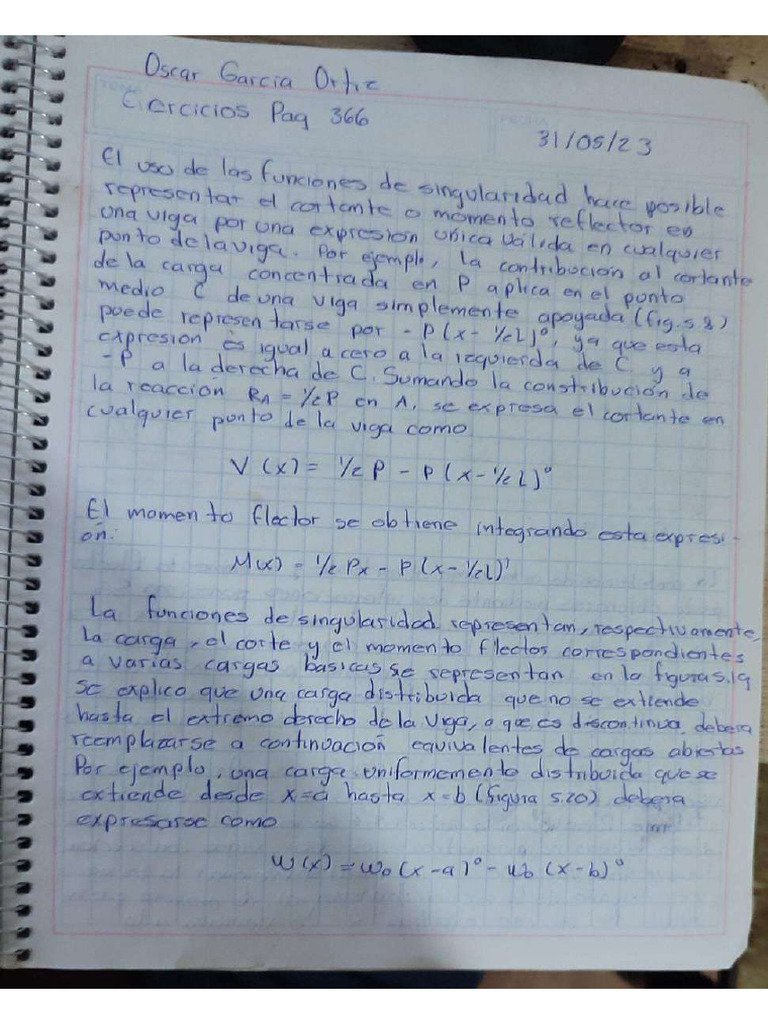 Oscar Garcia Ortiz
Ejercicios Pag 366
31/05/23
El uso de las funciones de singularidad hace posible
representar el cortante o momento reflector en
una viga por una expresión única válida en cualquier
punto de la viga. Por ejemplo, la contribución al cortante
de la carga concentrada en P aplica en el punto
medio C de una viga simplemente apoyada (fig. 5.8)
puede representarse por -P(x-1/2L)°, ya que esta
expresión es igual a cero a la izquierda de C y a
-P a la derecha de C. Sumando la constribución de
la reacción RA = 1/2P en A, se expresa el cortante en
cualquier punto de la viga como
V(x) = 1/2 P - P(x-1/2L)°
El momento flector se obtiene integrando esta expresi-
ón:
M(x) = 1/2 Px - P(x-1/2L)'
La funciones de singularidad representan, respectivamente,
la carga, el corte y el momento flectos correspondientes
a varias cargas basicas se representan en la figura 5.19
se explico que una carga distribuida que no se extiende
hasta el extremo derecho de la viga, o que es discontinua, debera
reemplazarse a continuación equivalentes de cargas abiertas
Por ejemplo, una carga uniformemento distribuida que se
extiende desde x=a hasta x=b (figura 5.20) debera
expresarse como
w(x) = w0(x-a)° - w0(x-b)°